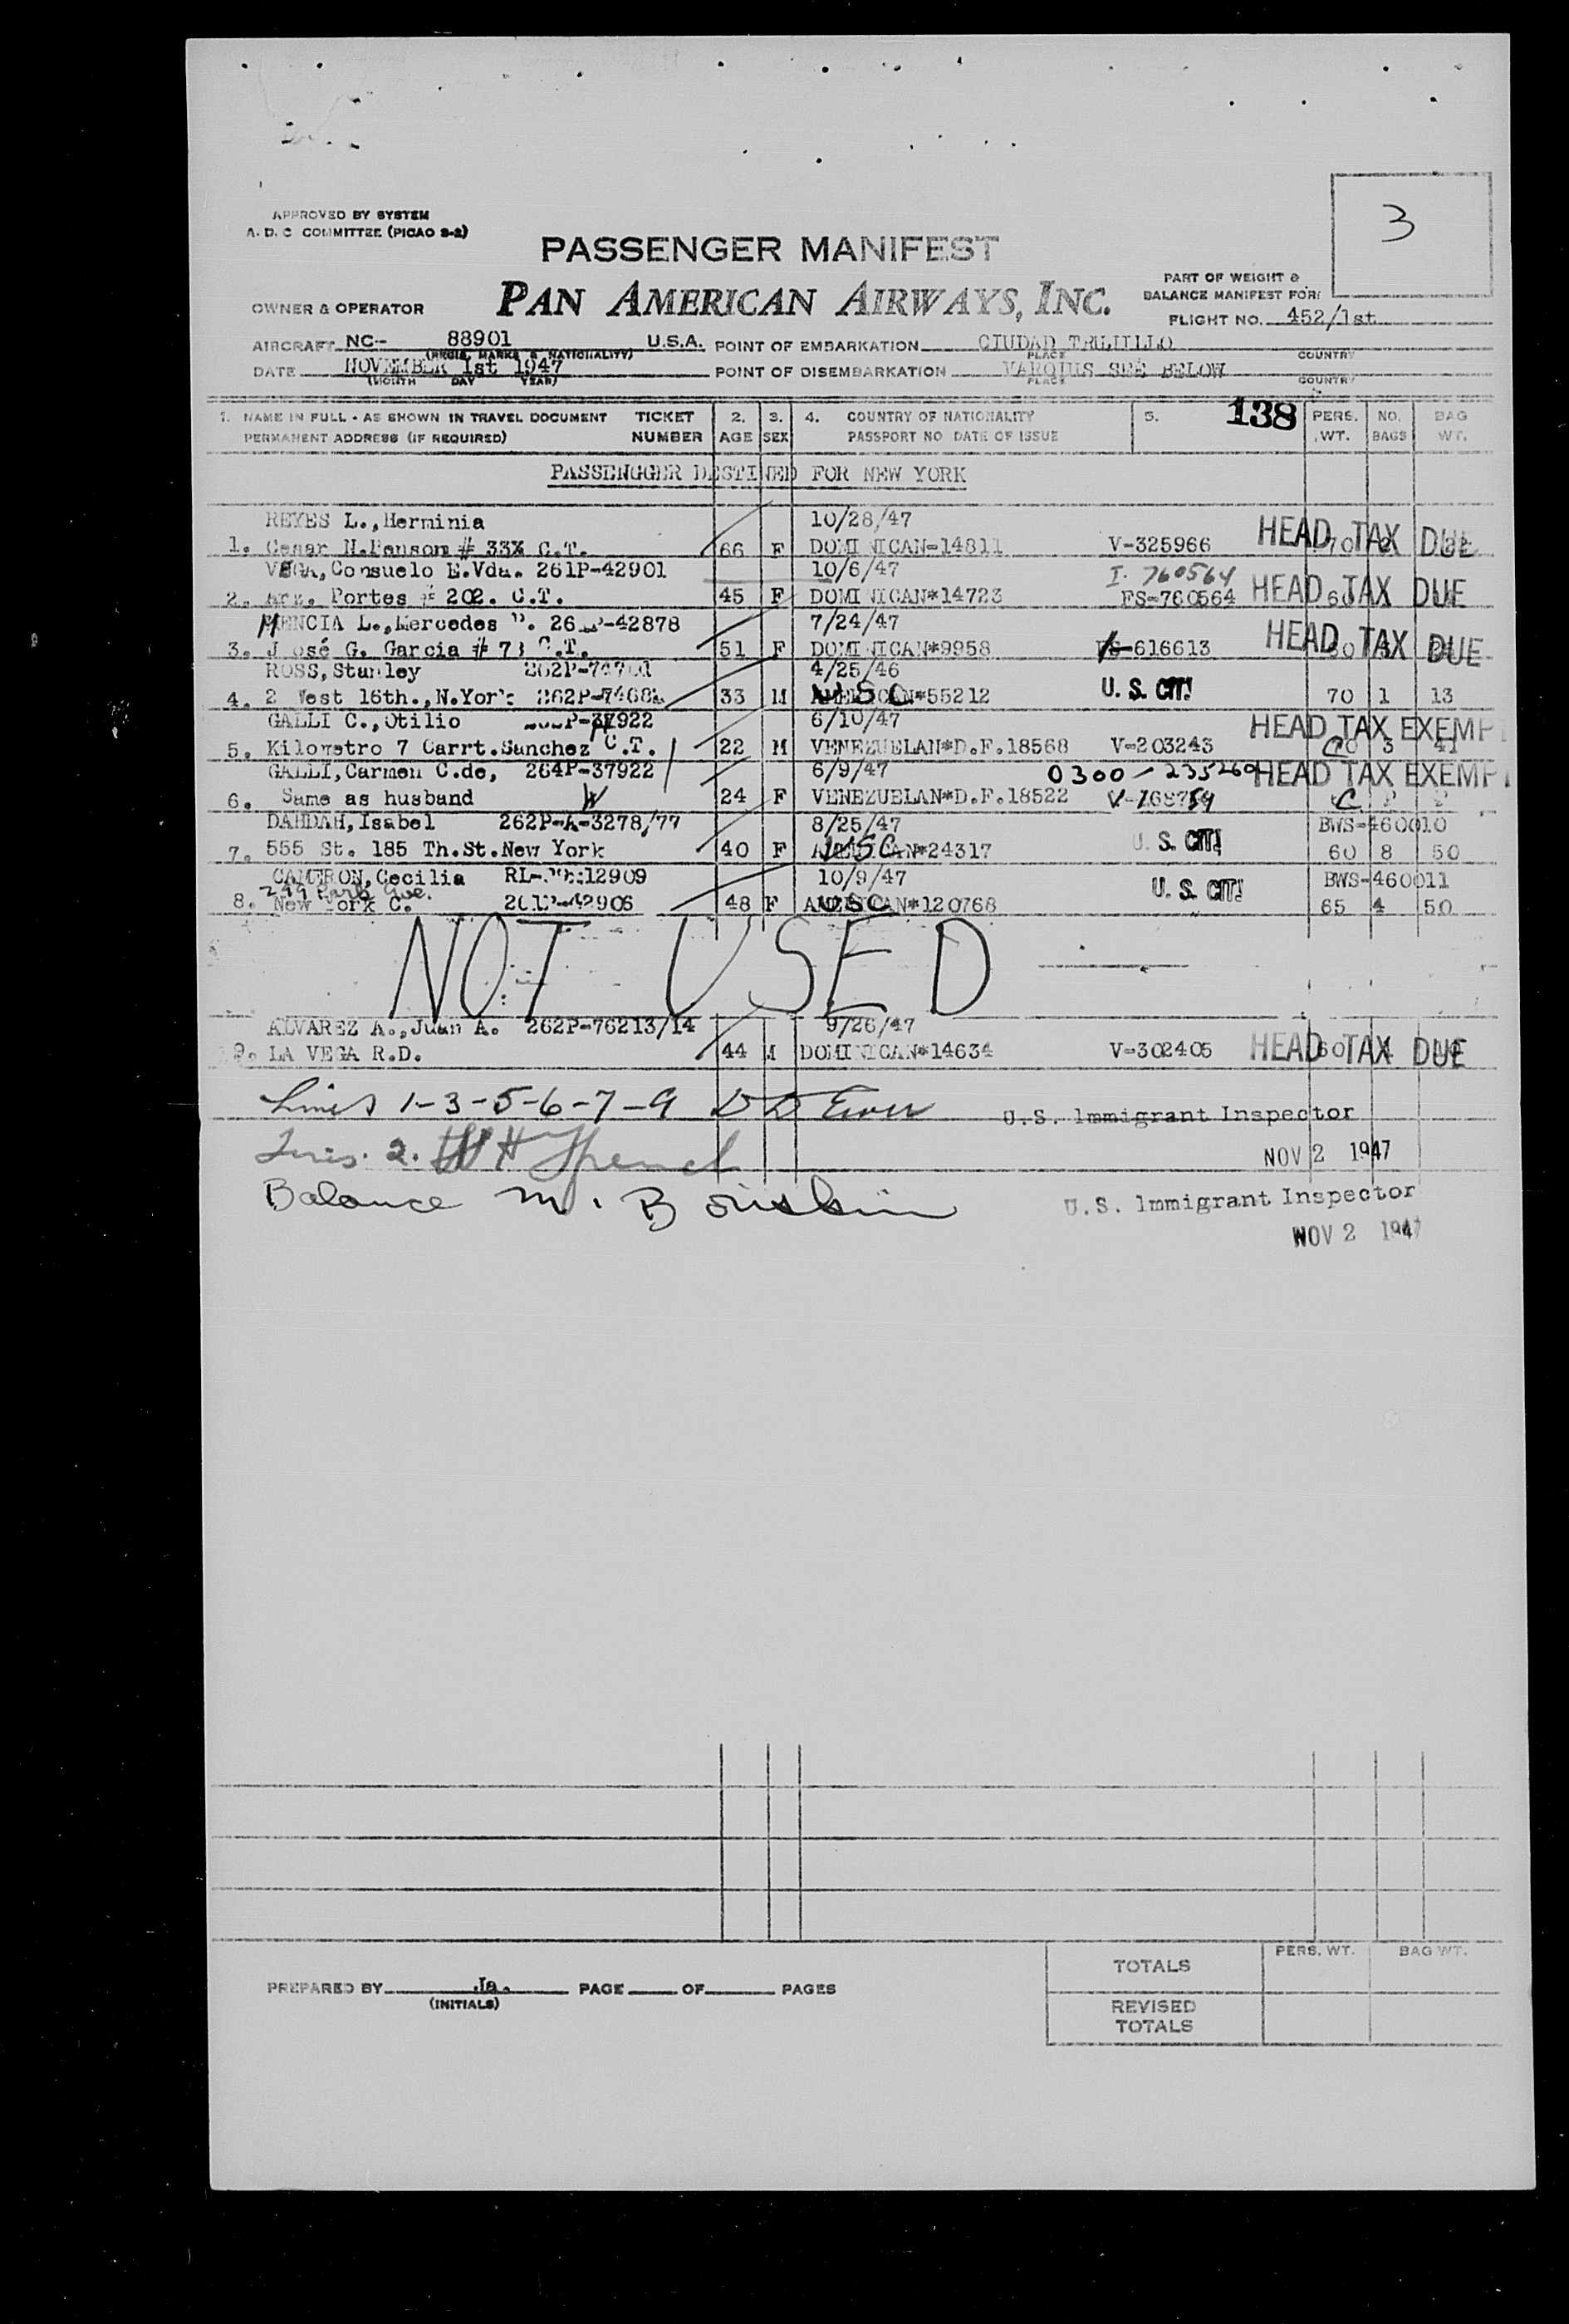 APPROVED BY SYSTEM
A. D. C COMMITTEE (PICAO S-2)
3
PASSENGER MANIFEST
PAN AMERICAN AIRWAYS, INC.
OWNER & OPERATOR
PART OF WEIGHT &
BALANCE MANIFEST FOR:
FLIGHT NO. 452/1st
AIRCRAFT NC-- 88901 U.S.A. POINT OF EMBARKATION CIUDAD TRUJILLO
(REGIS. MARKS & NATIONALITY) PLACE COUNTRY
DATE NOVEMBER 1st 1947 POINT OF DISEMBARKATION VAROIUS SEE BELOW
(MONTH DAY YEAR) PLACE COUNTRY
1. NAME IN FULL - AS SHOWN IN TRAVEL DOCUMENT TICKET 2. 3. 4. COUNTRY OF NATIONALITY 5. 138 PERS. NO. BAG
PERMANENT ADDRESS (IF REQUIRED) NUMBER AGE SEX PASSPORT NO DATE OF ISSUE WT. BAGS WT.
PASSENGGER DESTINED FOR NEW YORK
REYES L.,Herminia 10/28/47
1. Cesar N.Penson # 33 C.T. 66 F DOMINICAN-14811 V-325966 HEAD TAX DUE
VEGA, Consuelo E.Vda. 261P-42901 10/6/47 I. 760564
2. Arz. Portes # 202. C.T. 45 F DOMINICAN*14723 FS-760564 HEAD TAX DUE
MENCIA L.,Mercedes 7/24/47
3. José G. Garcia # 73 C.T. 51 F DOMINICAN*9958 616613 HEAD TAX DUE
ROSS, Stanley 4/25/46
4. 2 West 16th.,N.York 33 M USC *55212 U. S. CIT! 70 1 13
GALLI C.,Otilio 6/10/47
5. Kilometro 7 Carrt.Sanchez C.T. 22 M VENEZUELAN*D.F.18568 V-203243 HEAD TAX EXEMPT 3 41
GALLI, Carmen C.de, 264P-37922 6/9/47 0300-235260
6. Same as husband W 24 F VENEZUELAN*D.F.18522 HEAD TAX EXEMPT
DAHDAH, Isabel 262P-A-3278/77 8/25/47 BWS-460010
7. 555 St. 185 Th.St.New York 40 F USC *24317 U. S. CIT! 60 8 50
CAMERON, Cecilia 10/9/47 BWS-460011
299 Park Ave.
8. New York C. 261P-42906 48 F USC *120768 U. S. CIT! 65 4 50
NOT USED
ALVAREZ A.,Juan A. 262P-76213/14 9/26/47
9. LA VEGA R.D. 44 M DOMINICAN*14634 V-302405 HEAD TAX DUE
Lines 1-3-5-6-7-9 U.S. Immigrant Inspector
2. NOV 2 1947
Balance M. U.S. Immigrant Inspector
NOV 2 1947
PREPARED BY Ja. PAGE OF PAGES
(INITIALS)
PERS. WT. BAG WT.
TOTALS
REVISED
TOTALS